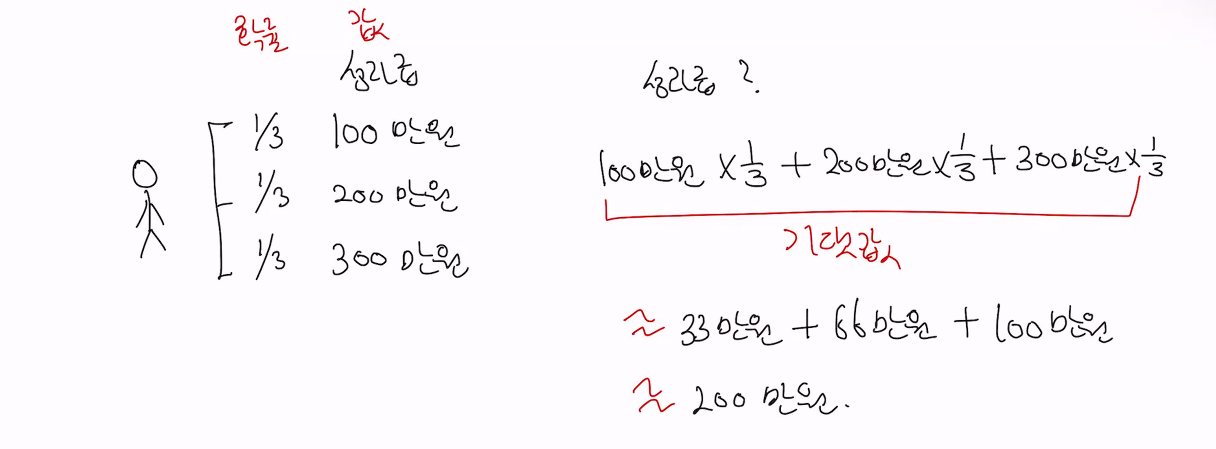 확률 값
상금
1/3 100만원
1/3 200만원
1/3 300만원
?
100만원 × 1/3 + 200만원 × 1/3 + 300만원 × 1/3
기댓값
≈ 33만원 + 66만원 + 100만원
≈ 200만원.